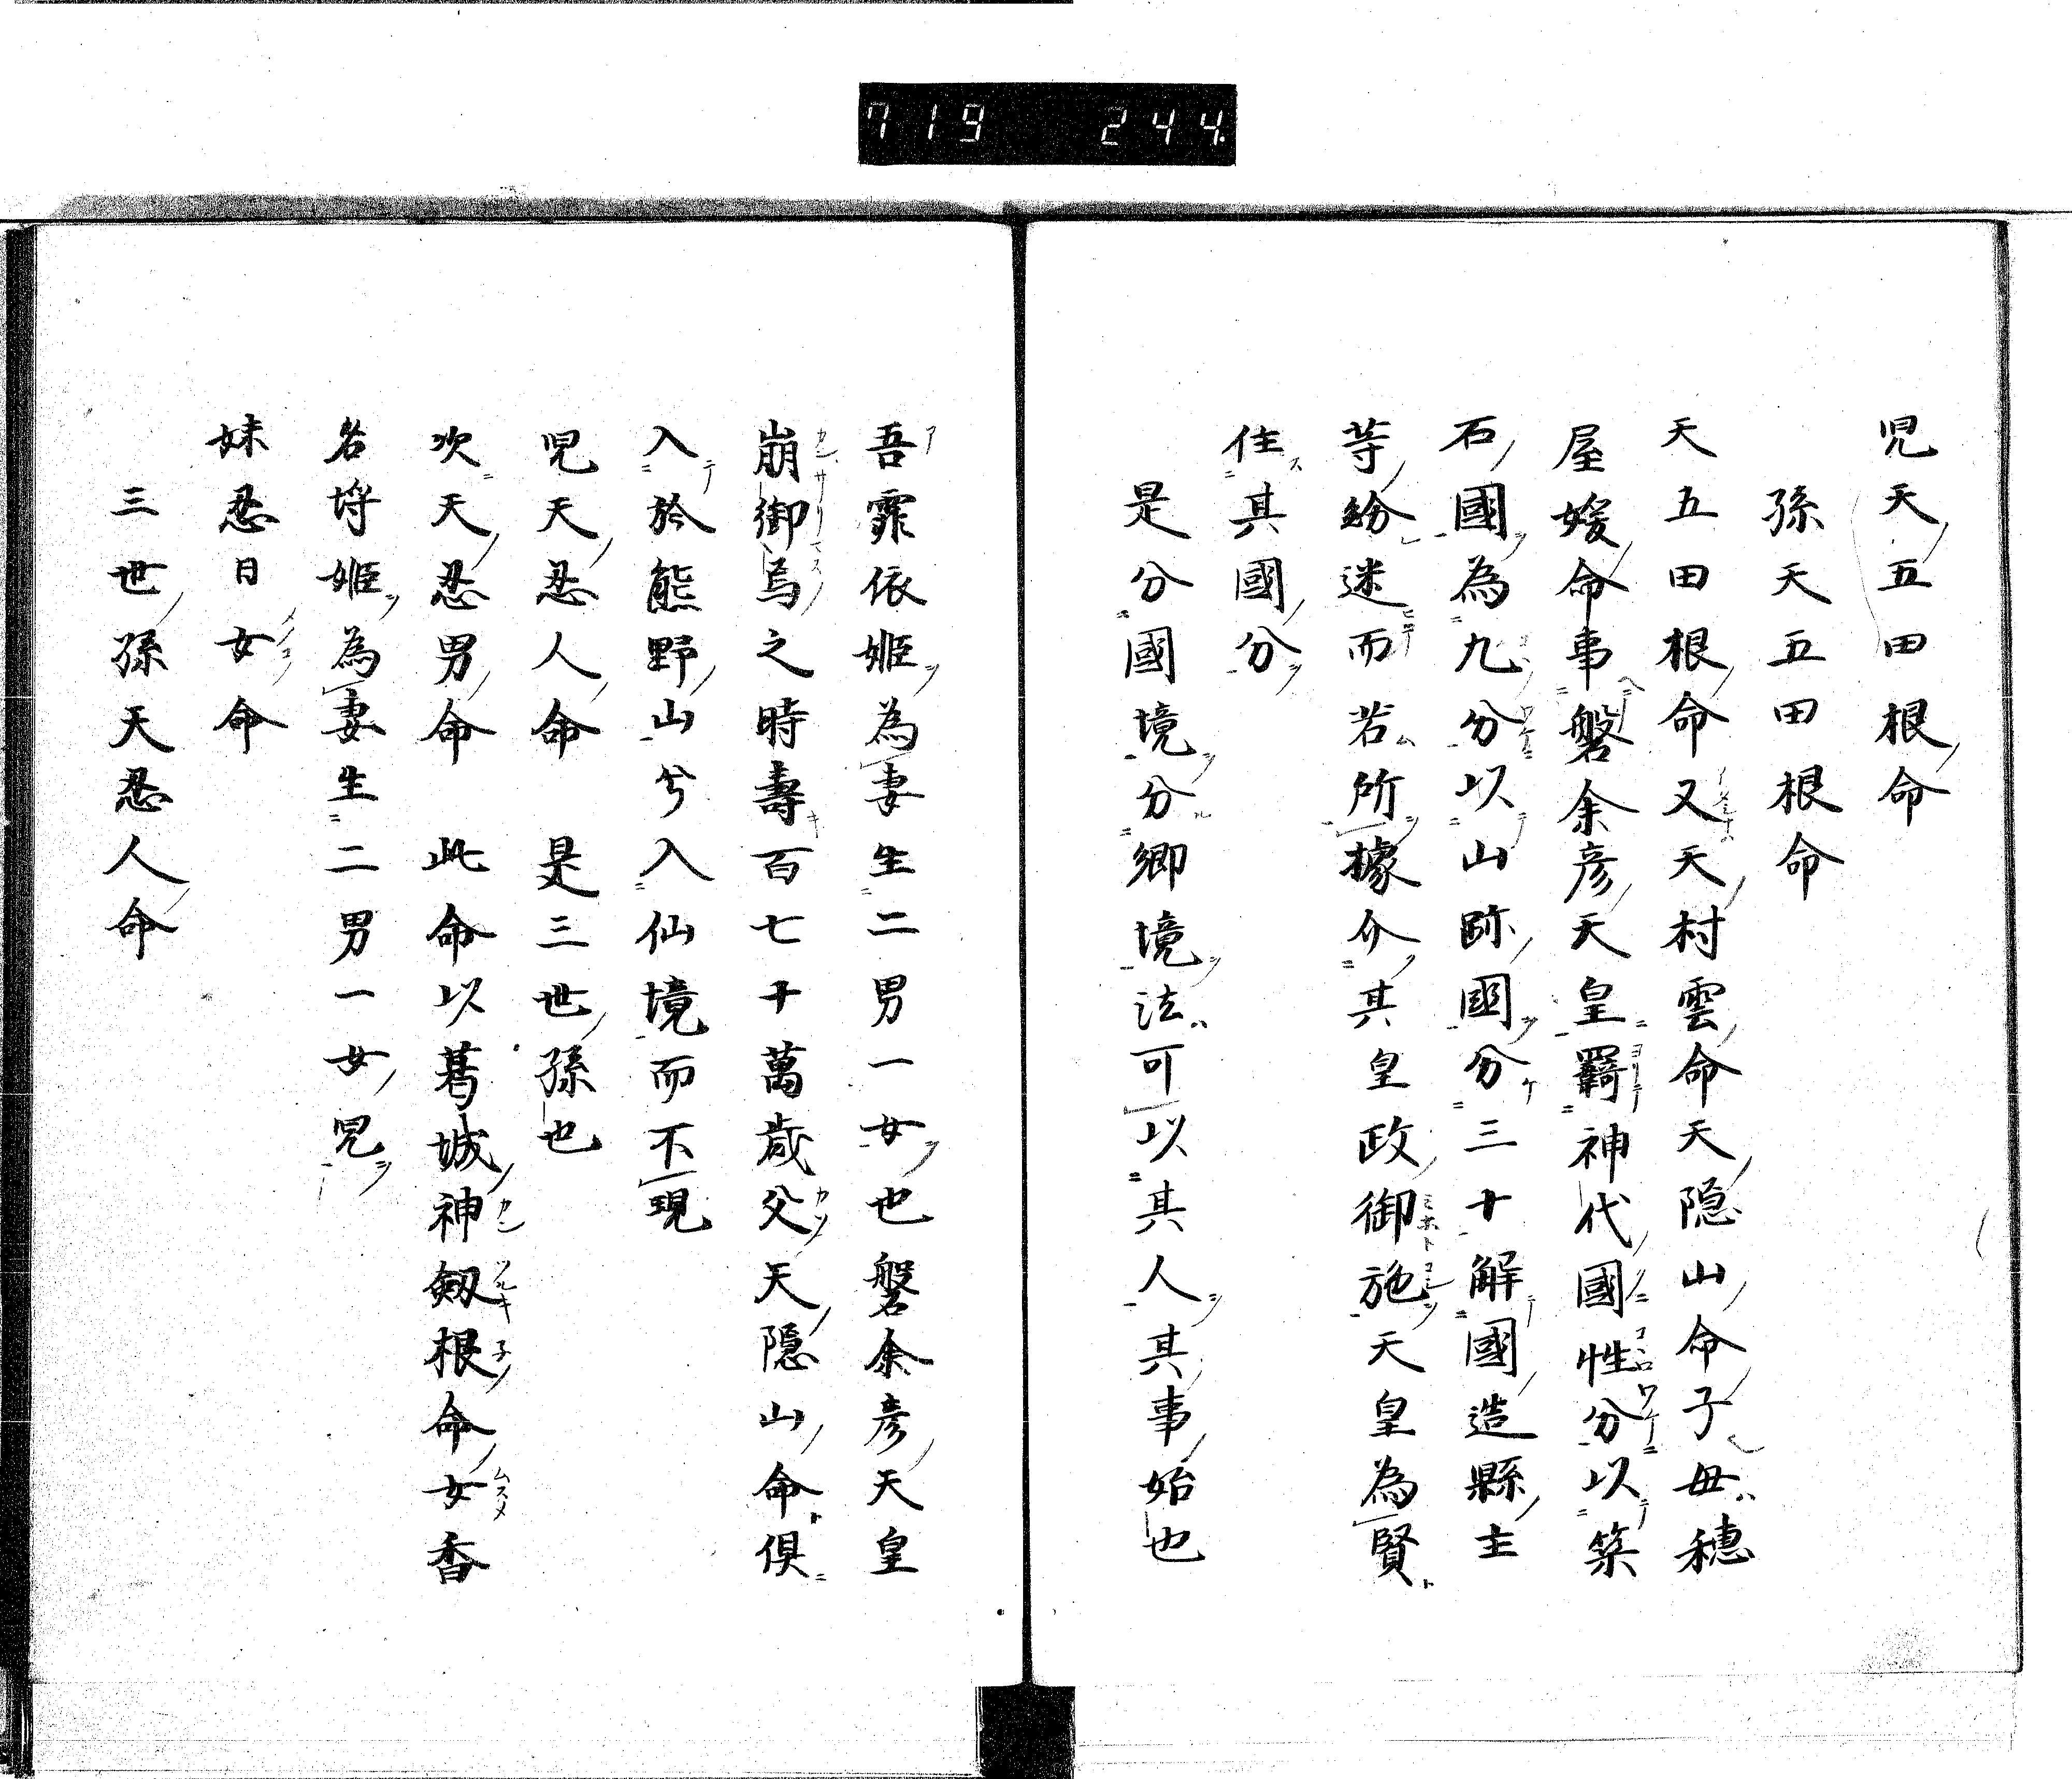 719 244
児天五田根命
孫天五田根命
天五田根命又天村雲命天隠山命子母穂
屋媛命事磐余彦天皇羇神代國性分以築
石國為九分以山跡國分三十解國造縣主
等紛迷而若所據介其皇政御施天皇為賢
住其國分
是分國境分郷境法可以其人其事始也
吾霏依姫為妻生二男一女也磐余彦天皇
崩御焉之時壽百七十萬歳父天隠山命倶
入於熊野山兮入仙境而不現
児天忍人命 是三世孫也
次天忍男命 此命以葛城神劔根命女香
名埓姫為妻生二男一女児
妹忍日女命
三世孫天忍人命